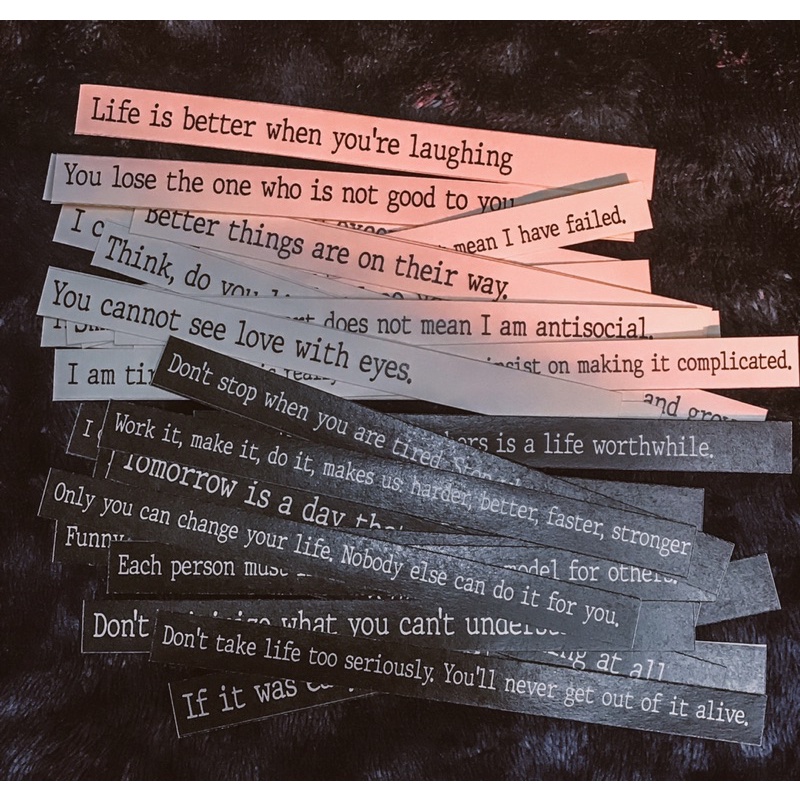 Life is better when you're laughing
You lose the one who is not good to you
mean I have failed.
I c
Better things are on their way.
Think, do you
You cannot see love with eyes.
does not mean I am antisocial.
insist on making it complicated.
I am ti
really
and grow
Don't stop when you are tired. Stop
is a life worthwhile.
I
Work it, make it, do it, makes us: harder, better, faster, stronger
Tomorrow is a day that
Only you can change your life. Nobody else can do it for you.
Funny
model for others.
Each person must
Don't
what you can't
at all
Don't take life too seriously. You'll never get out of it alive.
If it was